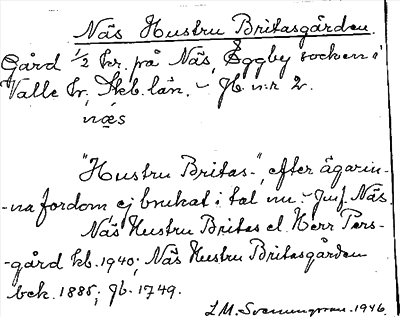 Näs Hustru Britasgården.
Gård 1/2 kr. på Näs, Eggby socken i
Valle hr, Skb. län. - Jb. n:r 2.
næs
"Hustru Britas-", efter ägarin-
-na fordom ej brukat i tal nu. - Jmf. Näs.
Näs Hustru Britas el. Herr Pers-
-gård kb. 1940; Näs Hustru Britasgården
bek. 1885; Jb. 1749.
L.M. Svenungsson. 1946.